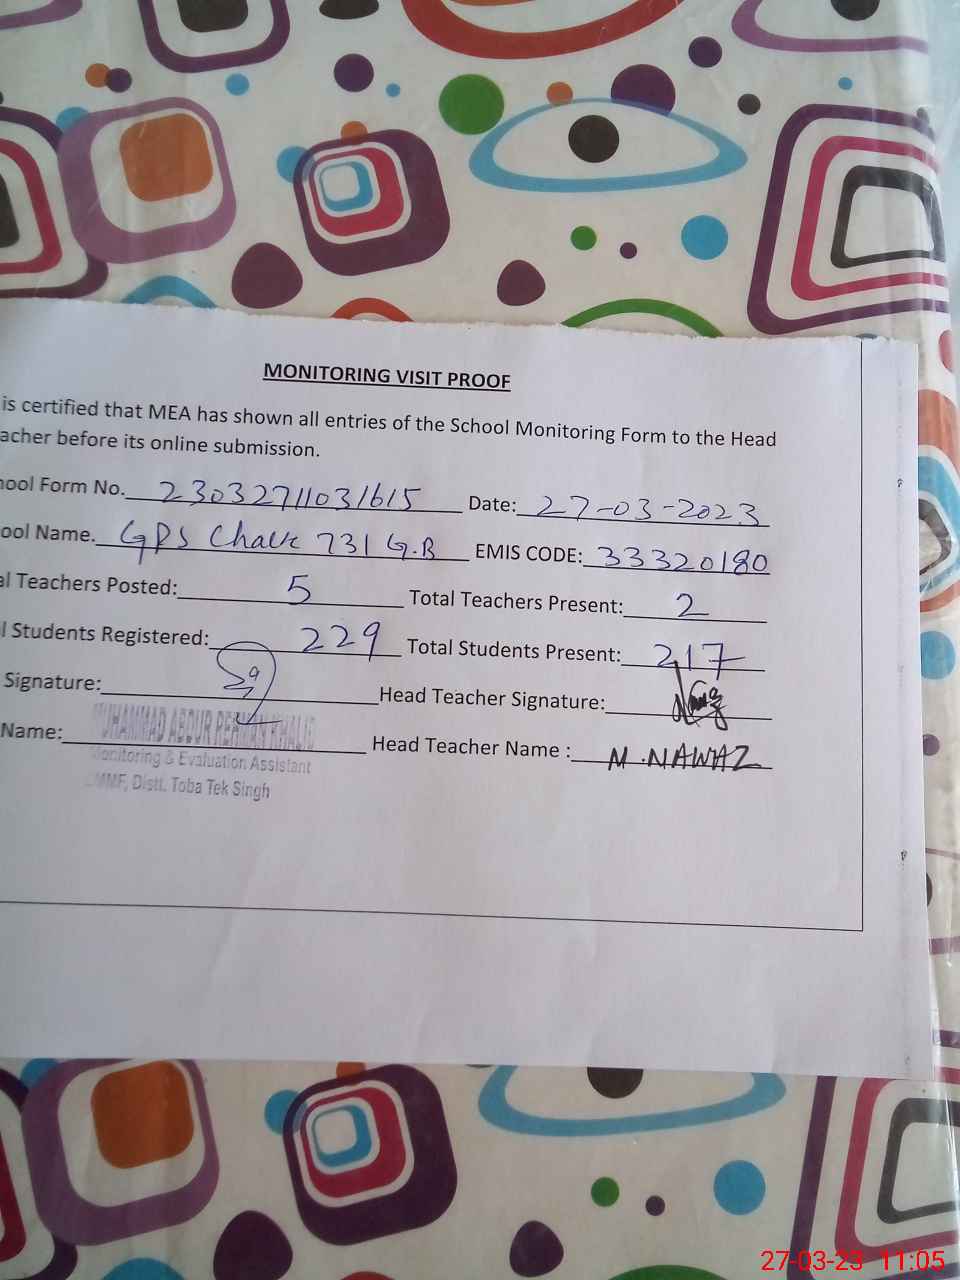 MONITORING VISIT PROOF
is certified that MEA has shown all entries of the School Monitoring Form to the Head
acher before its online submission.
hool Form No. 23032711031615 Date: 27-03-2023
ool Name. GPS Chack 731 G.B EMIS CODE: 33320180
al Teachers Posted: 5 Total Teachers Present: 2
l Students Registered: 229 Total Students Present: 217
Signature: Head Teacher Signature:
Name: MUHAMMAD ABDUR REHMAN KHALID Head Teacher Name : M.NAWAZ
Monitoring & Evaluation Assistant
CMMF, Distt. Toba Tek Singh
27-03-23 11:05